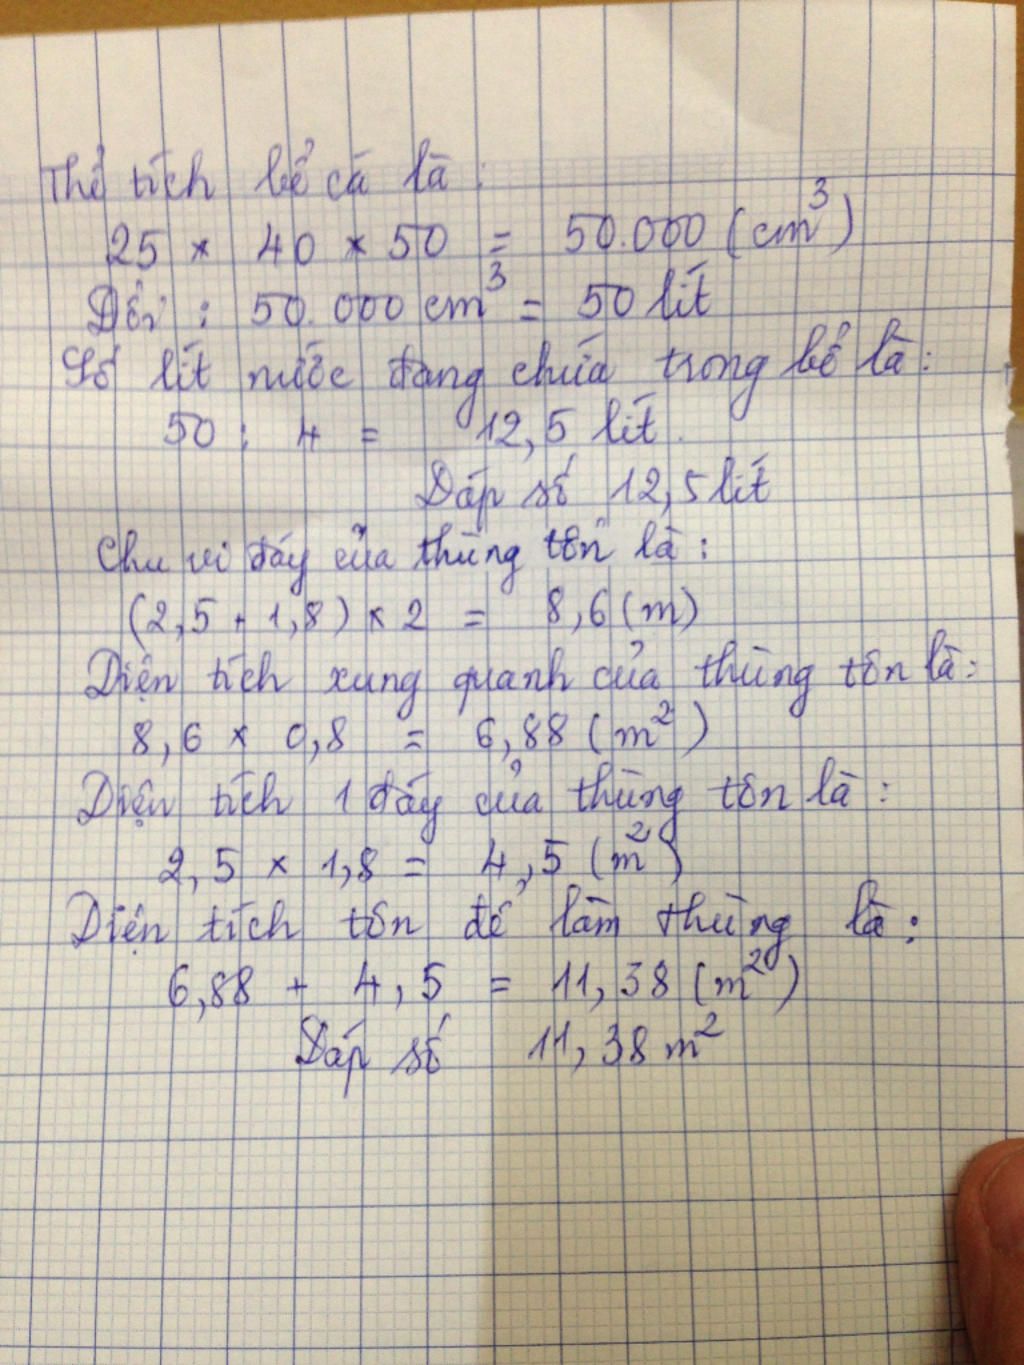 Thể tích bể cá là :
25 × 40 × 50 = 50.000 (cm³)
Đổi : 50.000 cm³ = 50 lít
Số lít nước đang chứa trong bể là :
50 : 4 = 12,5 lít.
Đáp số 12,5 lít
Chu vi đáy của thùng tôn là :
(2,5 + 1,8) × 2 = 8,6 (m)
Diện tích xung quanh của thùng tôn là :
8,6 × 0,8 = 6,88 (m²)
Diện tích 1 đáy của thùng tôn là :
2,5 × 1,8 = 4,5 (m²)
Diện tích tôn để làm thùng là :
6,88 + 4,5 = 11,38 (m²)
Đáp số 11,38 m²